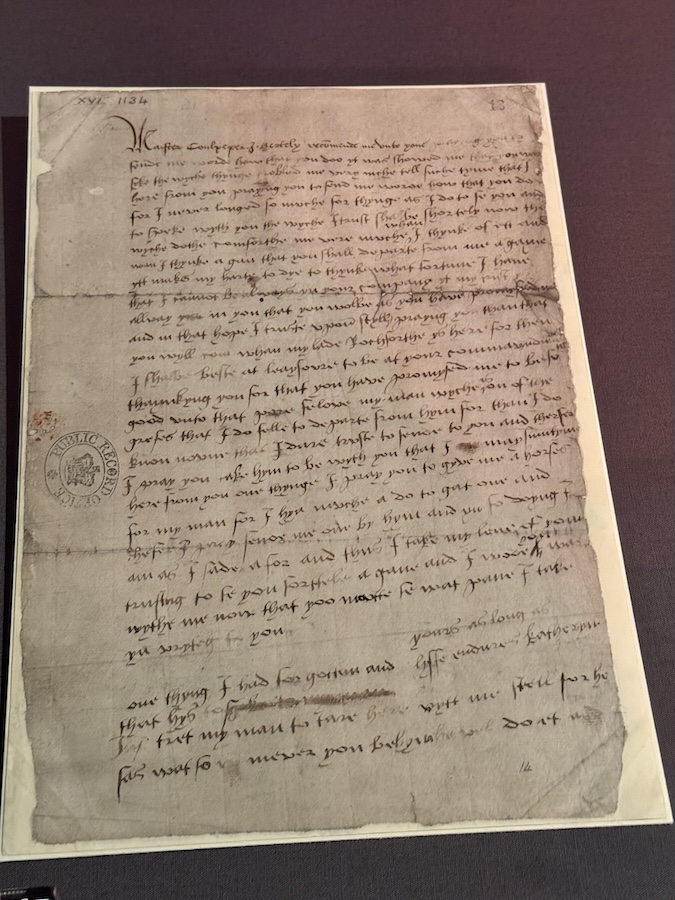 XVI. 1134
13
Maister Coulpeper I hertely recomende me unto youe praying you to
sende me worde how that you doo yt was showed me that you was
seke the wyche thynge trobled me very muche tell suche tyme that I
here from you praying you to send me worde how that you do
for I never longed so muche for thynge as I do to se you and
to speke wyth you the wyche I trust shal be shortely now the
wyche dothe comforthe me verie muche whan I thynke of ett and
wan I thynke agan that you shall departe from me agane
ytt makes my harte to dye to thynke what fortune I have
that I cannot be always yn your company yt my
allway yn you that you wolbe as you have promysed me
and in that hope I truste upon styll praying you than that
you wyll com whan my lade Rochforthe ys here for then
I shalbe beste at leaysoure to be at your commaundmant
thaynkyng you for that you have promysed me to be so
good unto that pore felowe my man wyche is on of the
grefes that I do felle to departe from hym for than I do
know noone that I dare truste to sende to you and therfor
I pray you take hym to be wyth you that I may sumtym
here from you one thynge I pray you to gyve me a horse
for my man for I hyd muche a do to gat one and
therfer I pray sende me one by hym and yn so doying I
am as I sade afor and thus I take my leve of you
trusting to se you sorttele agane and I wode you was
wythe me now that yoo maitte se wat pane I take
yn wryteg to you
yours as long as
lyffe endures Katheryn
one thyng I had forgotten and
that hys to
tret my man to tare here wytt me stell for he
sas wat so mever you bed do et
14
PUBLIC RECORD OFFICE